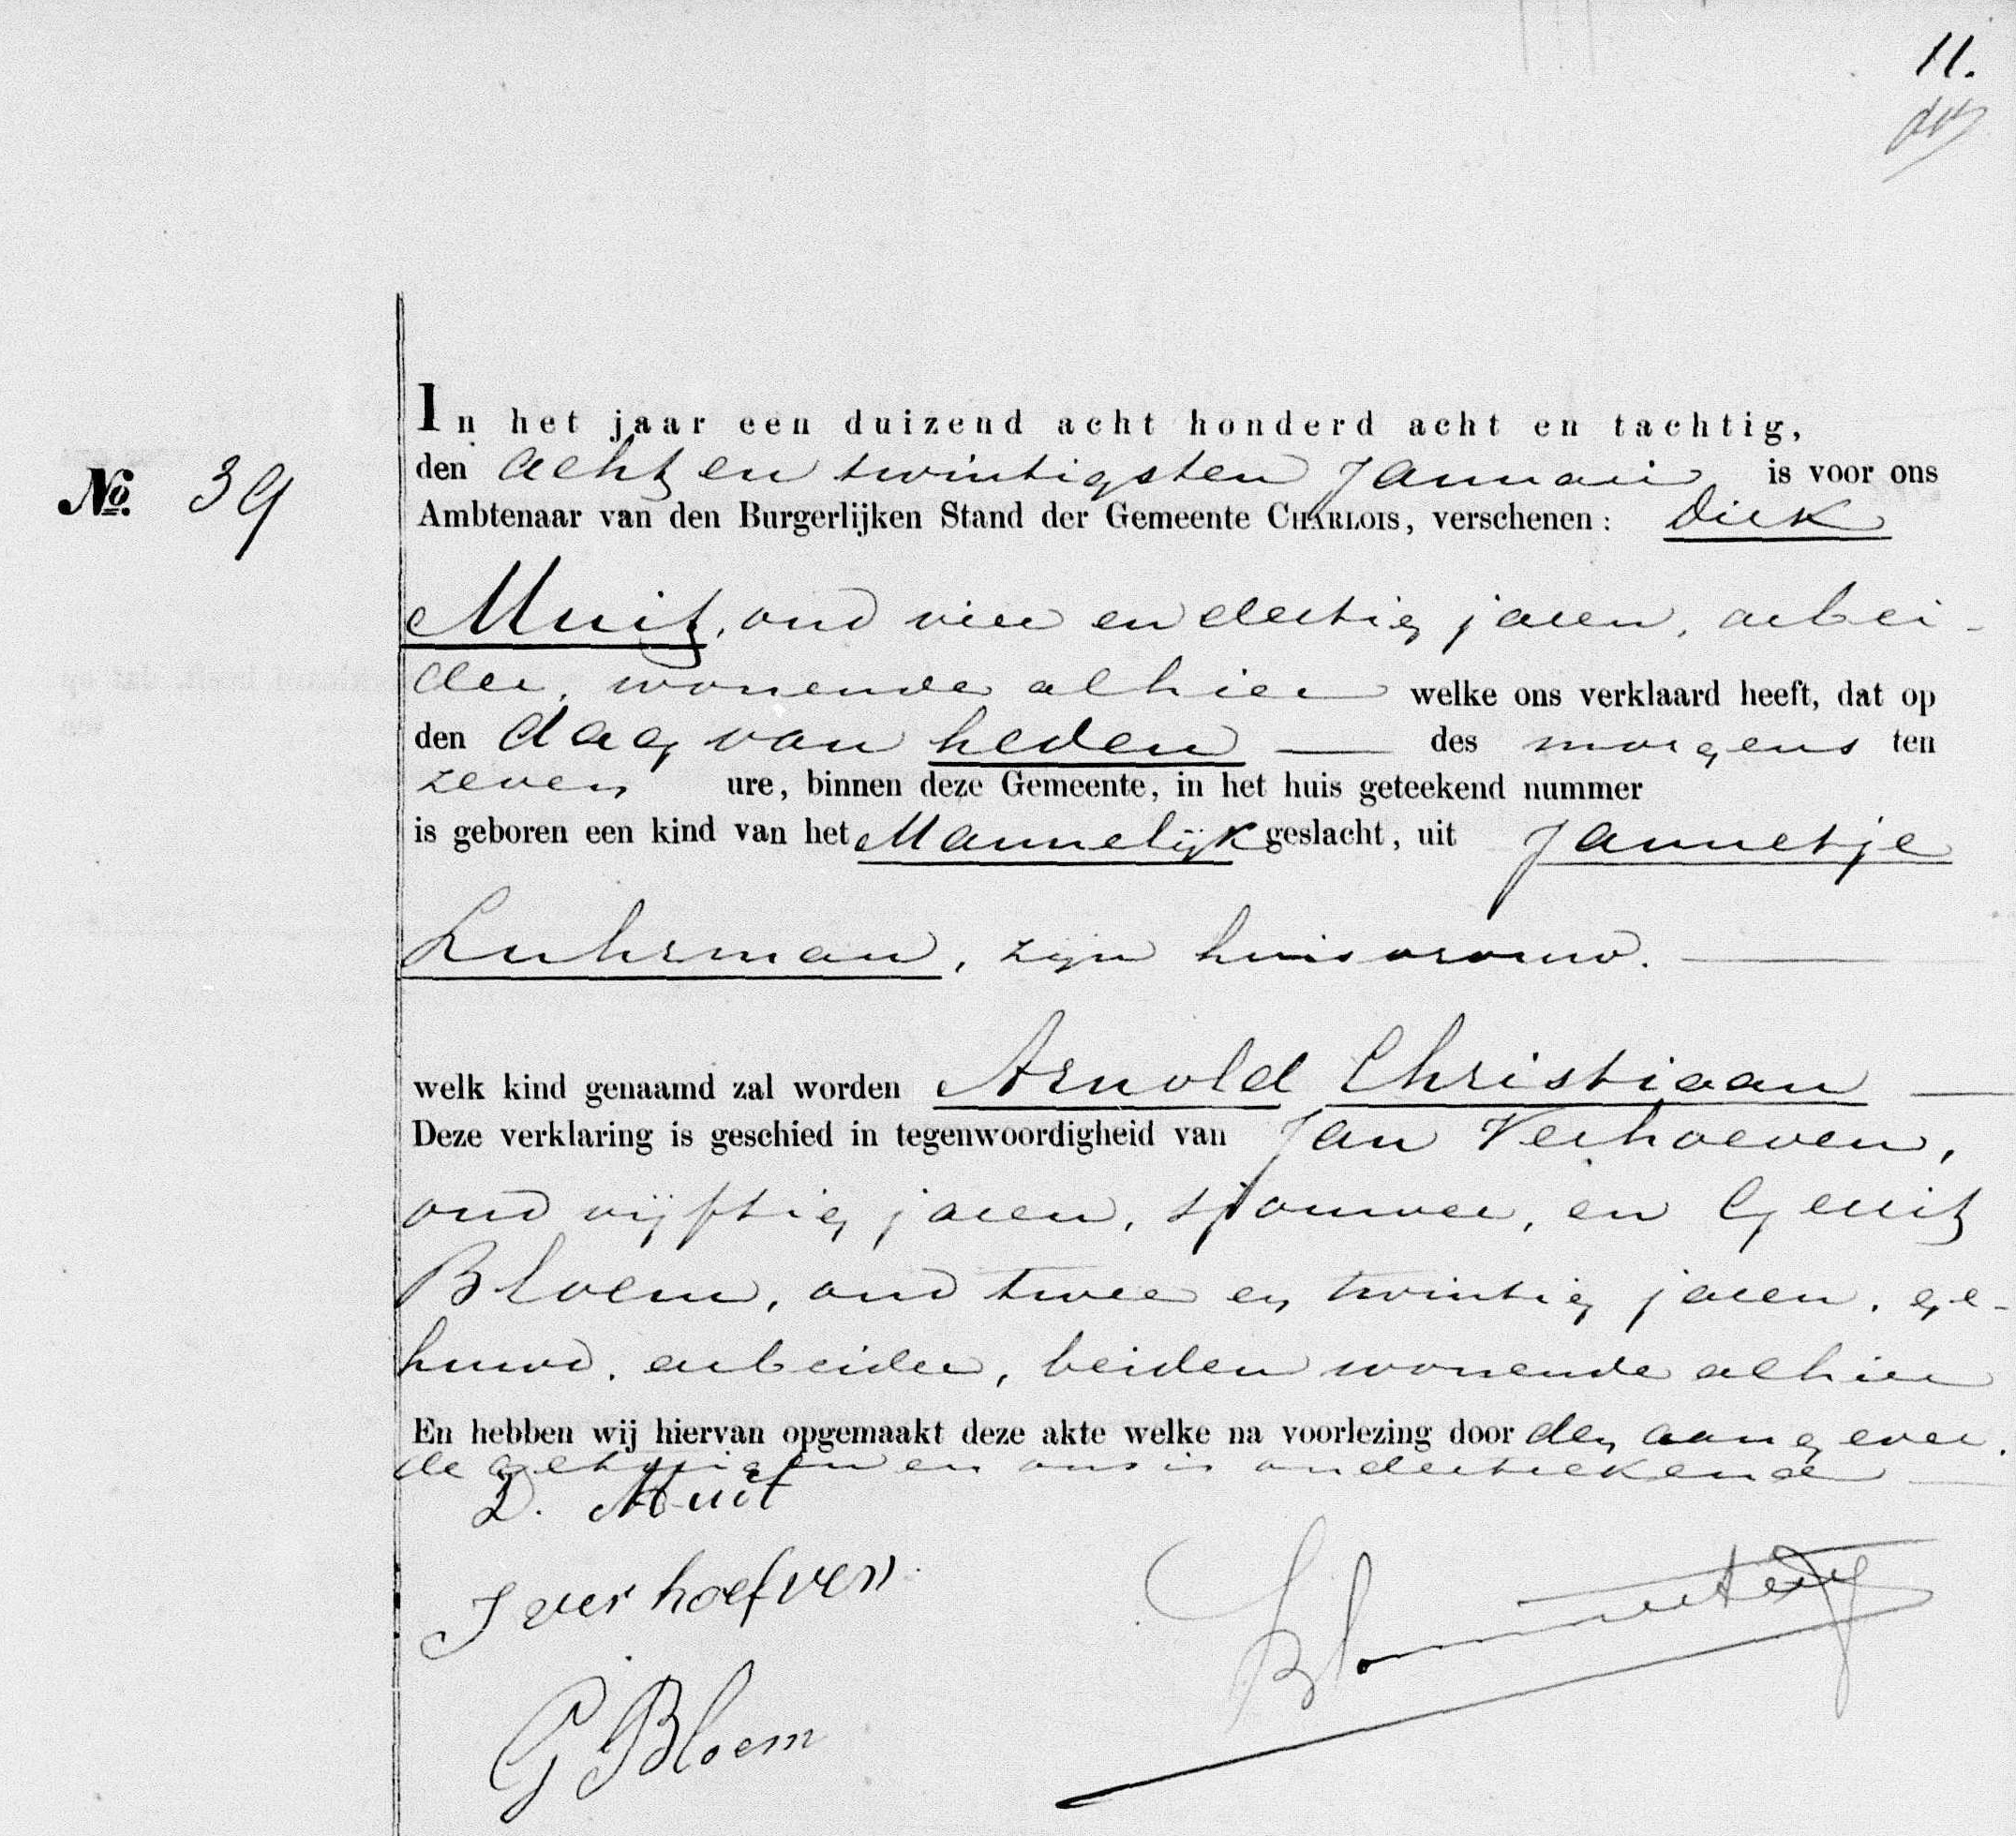 11.
In het jaar een duizend acht honderd acht en tachtig,
den acht en twintigsten Januari is voor ons
No. 39
Ambtenaar van den Burgerlijken Stand der Gemeente CHARLOIS, verschenen: Dirk
Muit, oud vier en dertig jaren, arbei-
der, wonende alhier welke ons verklaard heeft, dat op
den dag van heden des morgens ten
zeven ure, binnen deze Gemeente, in het huis geteekend nummer
is geboren een kind van het Mannelijk geslacht, uit Jannetje
Luhrman, zijn huisvrouw.
welk kind genaamd zal worden Arnold Christiaan
Deze verklaring is geschied in tegenwoordigheid van Jan Verhoeven,
oud vijftig jaren, sjouwer, en Gerrit
Bloem, oud twee en twintig jaren, ge-
huwd, arbeider, beiden wonende alhier
En hebben wij hiervan opgemaakt deze akte welke na voorlezing door den aangever,
de getuigen en ons is onderteekend
D. Muit
J verhoefven
G Bloem